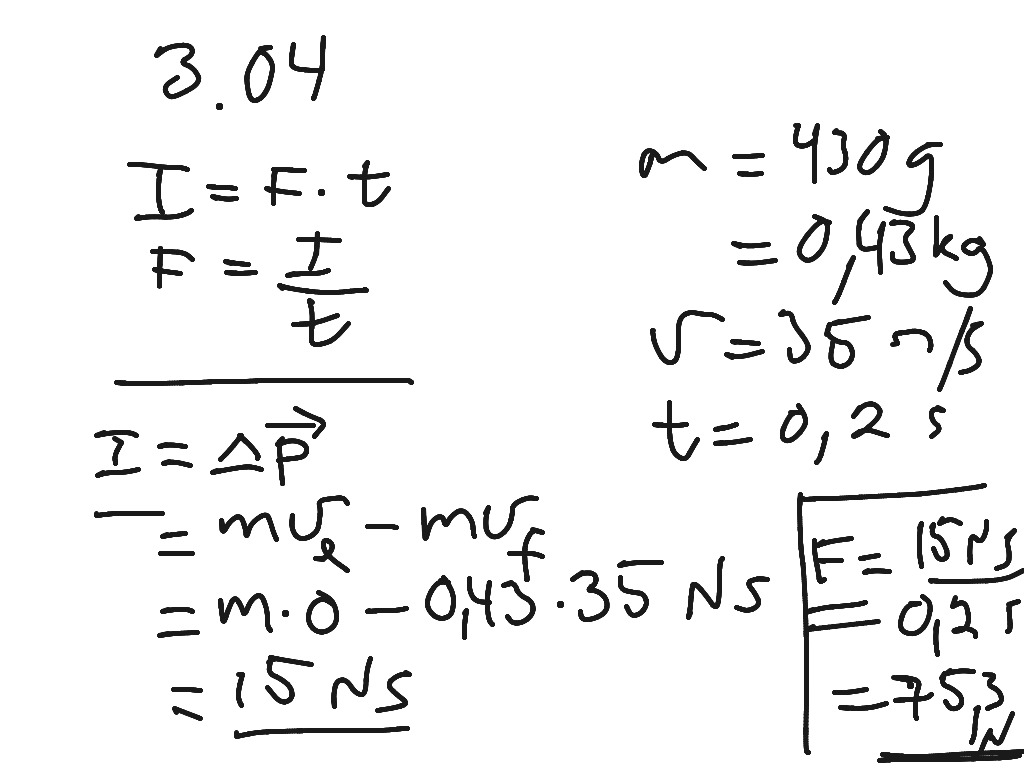 3.04
I = F · t
F = I / t
I = Δp⃗
= mvₑ - mv_f
= m · 0 - 0,43 · 35 Ns
= 15 Ns
m = 430 g
= 0,43 kg
v = 35 m/s
t = 0,2 s
F = 15 Ns
= 0,2 s
= 75,3 N